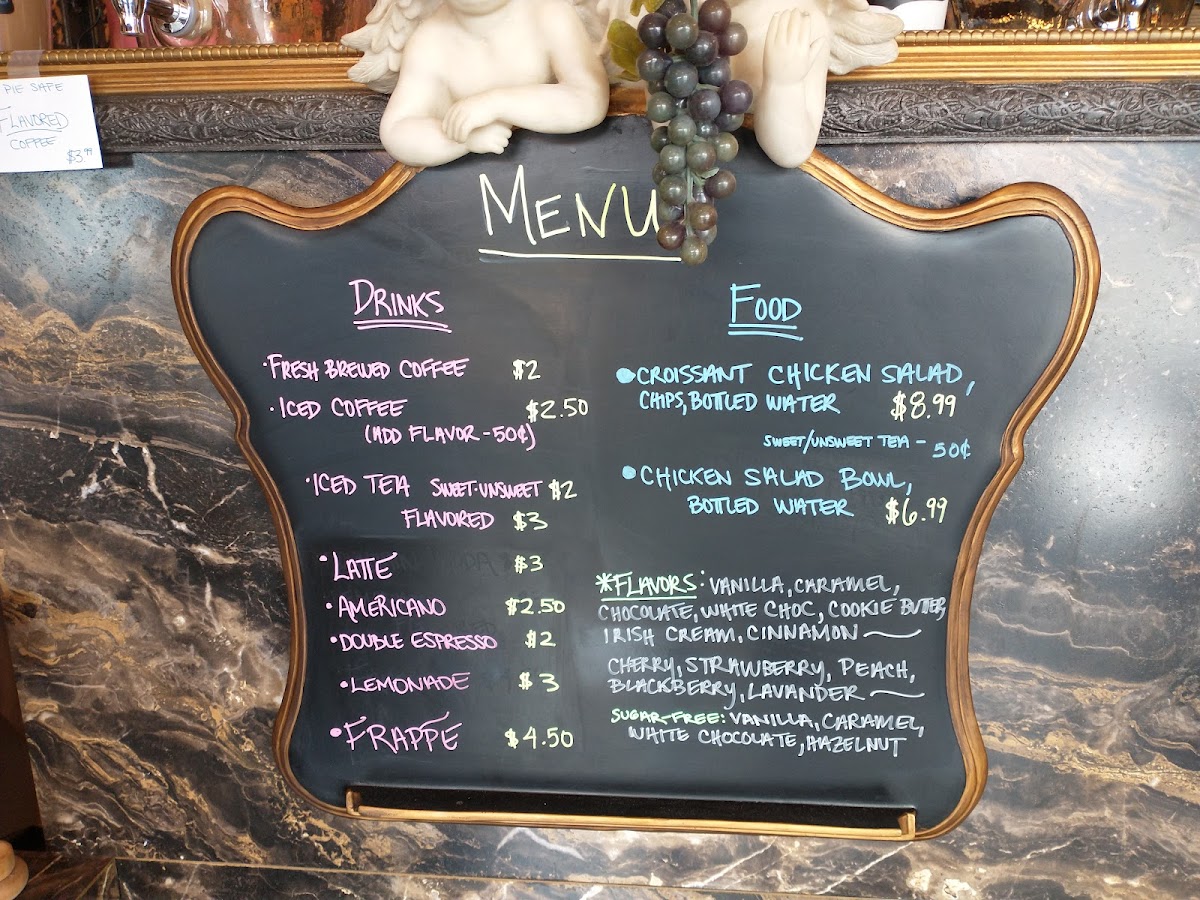 PIE SAFE
FLAVORED
COFFEE
$3.99
MENU
DRINKS
•FRESH BREWED COFFEE $2
•ICED COFFEE $2.50
(ADD FLAVOR - 50¢)
•ICED TEA SWEET-UNSWEET $2
FLAVORED $3
•LATTE $3
•AMERICANO $2.50
•DOUBLE ESPRESSO $2
•LEMONADE $3
•FRAPPE $4.50
FOOD
•CROISSANT CHICKEN SALAD,
CHIPS, BOTTLED WATER $8.99
SWEET/UNSWEET TEA - 50¢
•CHICKEN SALAD BOWL,
BOTTLED WATER $6.99
*FLAVORS: VANILLA, CARAMEL,
CHOCOLATE, WHITE CHOC, COOKIE BUTTER,
IRISH CREAM, CINNAMON
CHERRY, STRAWBERRY, PEACH,
BLACKBERRY, LAVANDER
SUGAR-FREE: VANILLA, CARAMEL,
WHITE CHOCOLATE, HAZELNUT